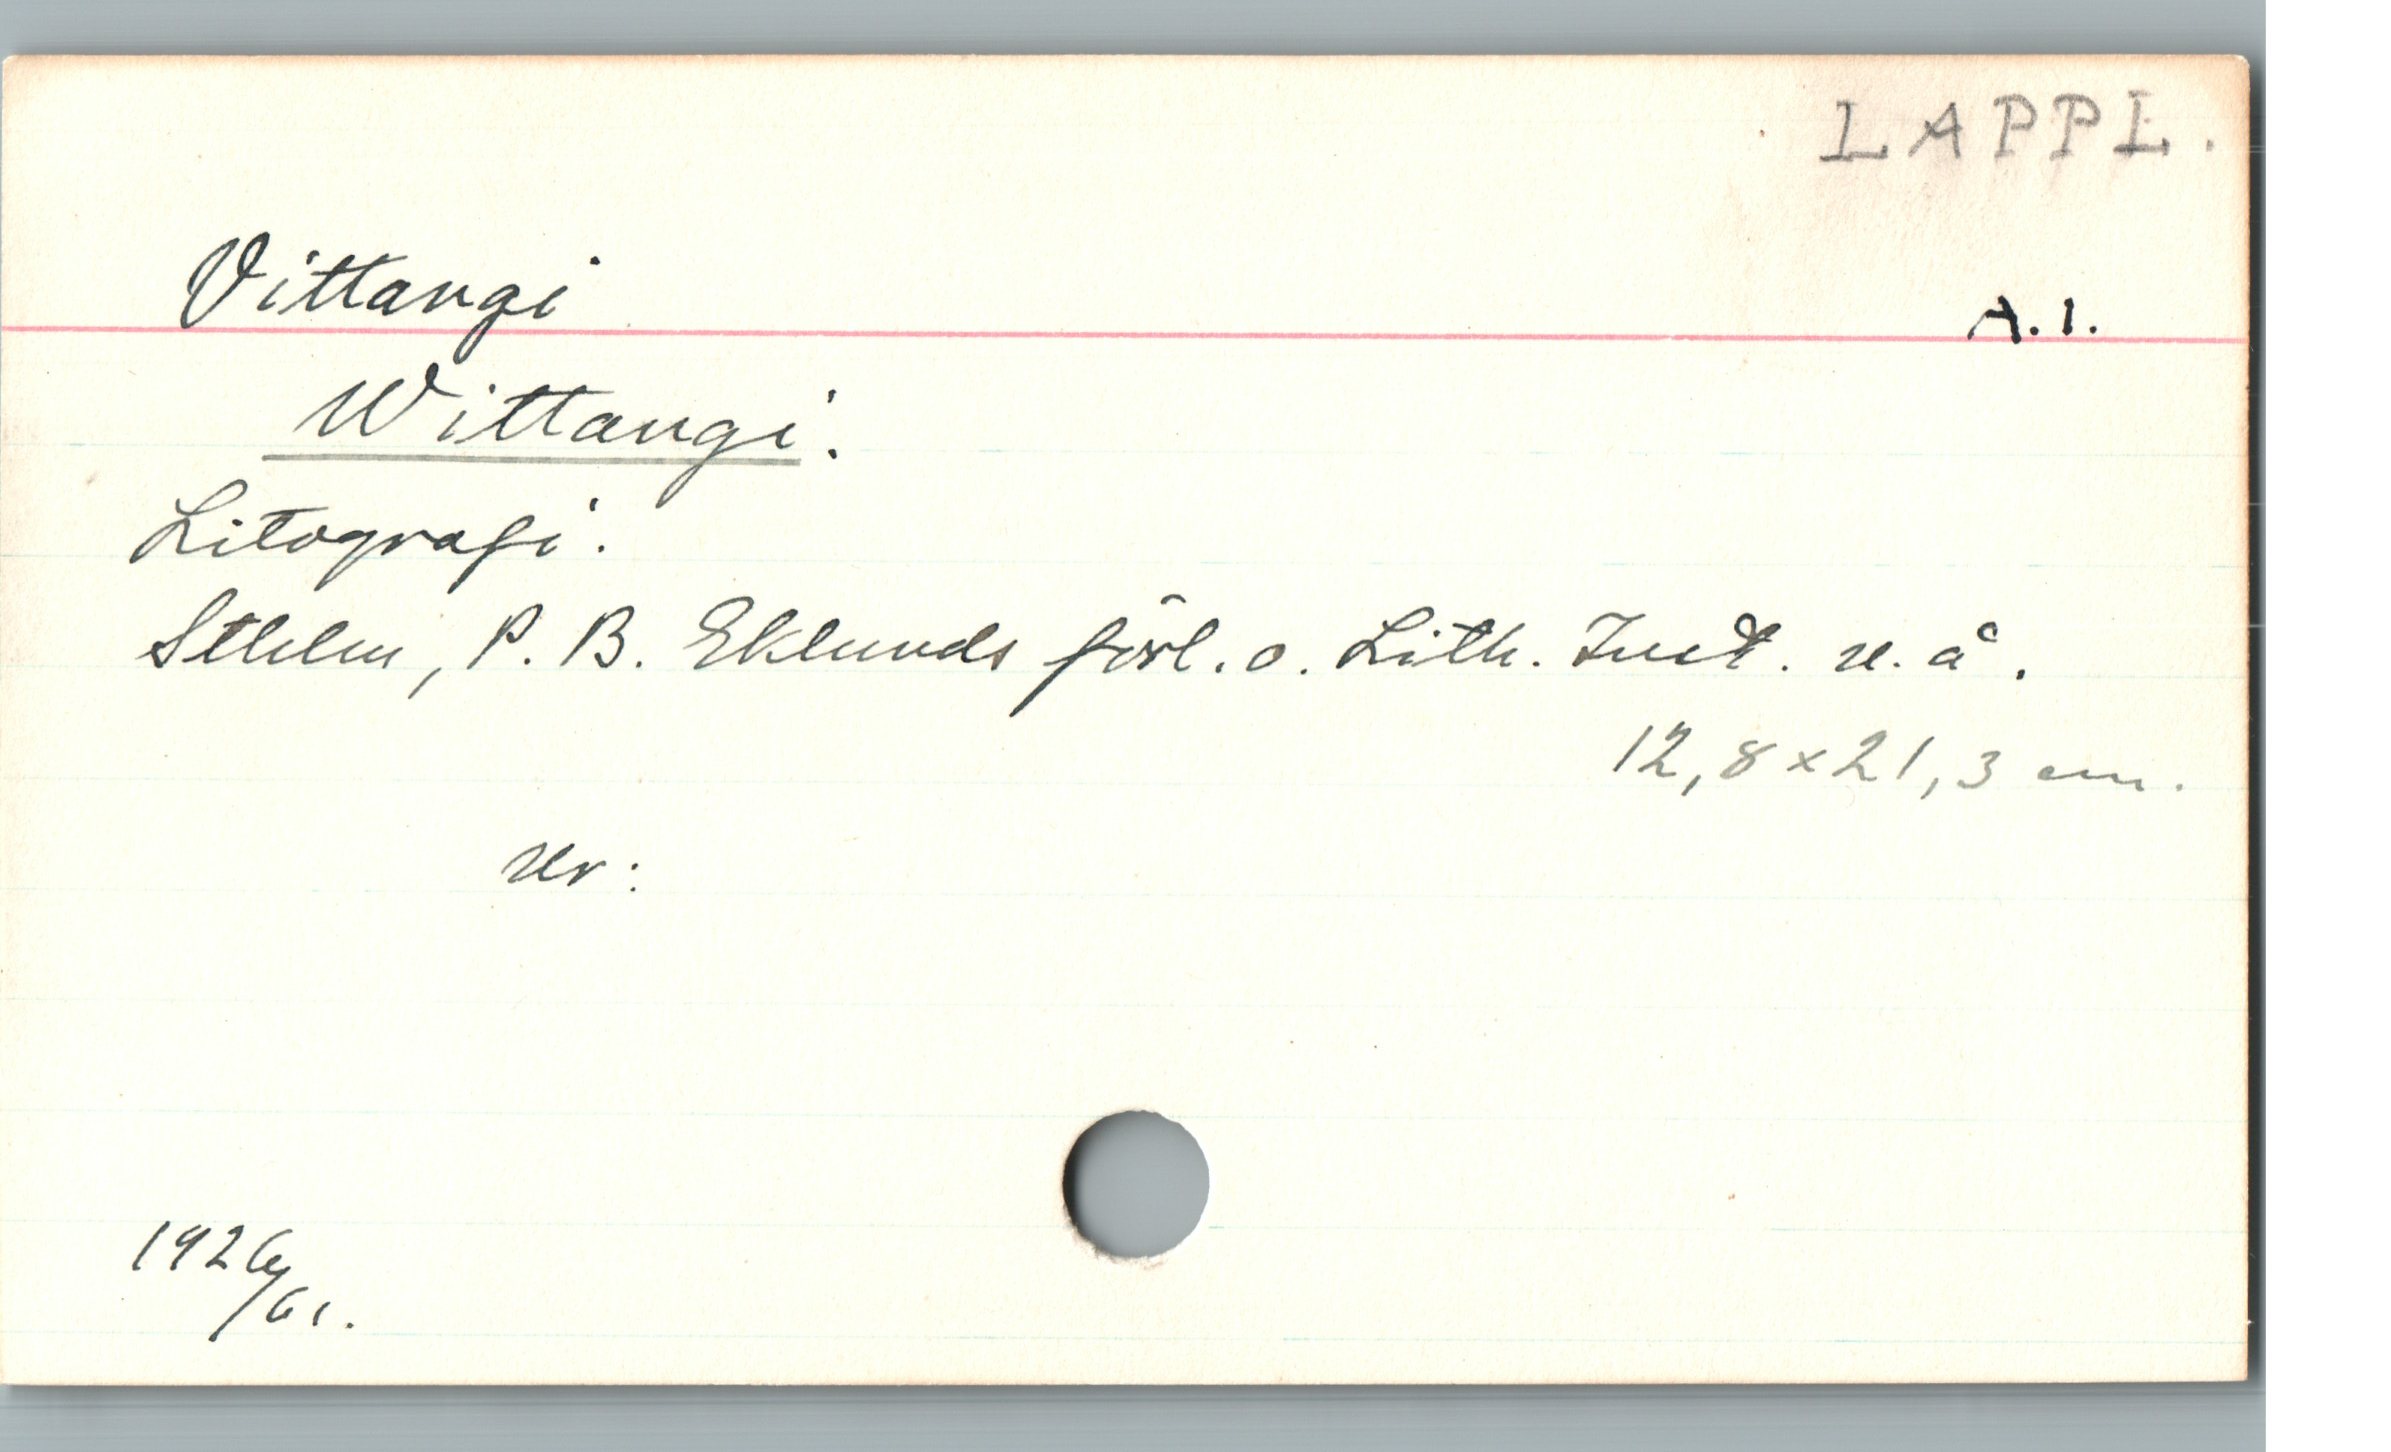 LAPPL.
Vittangi
A. 1.
Wittangi.
Litografi.
Sthlm, P. B. Eklunds förl. o. Lith. Inst. u. å.
12,8 x 21,3 cm.
Ur:
1926/61.